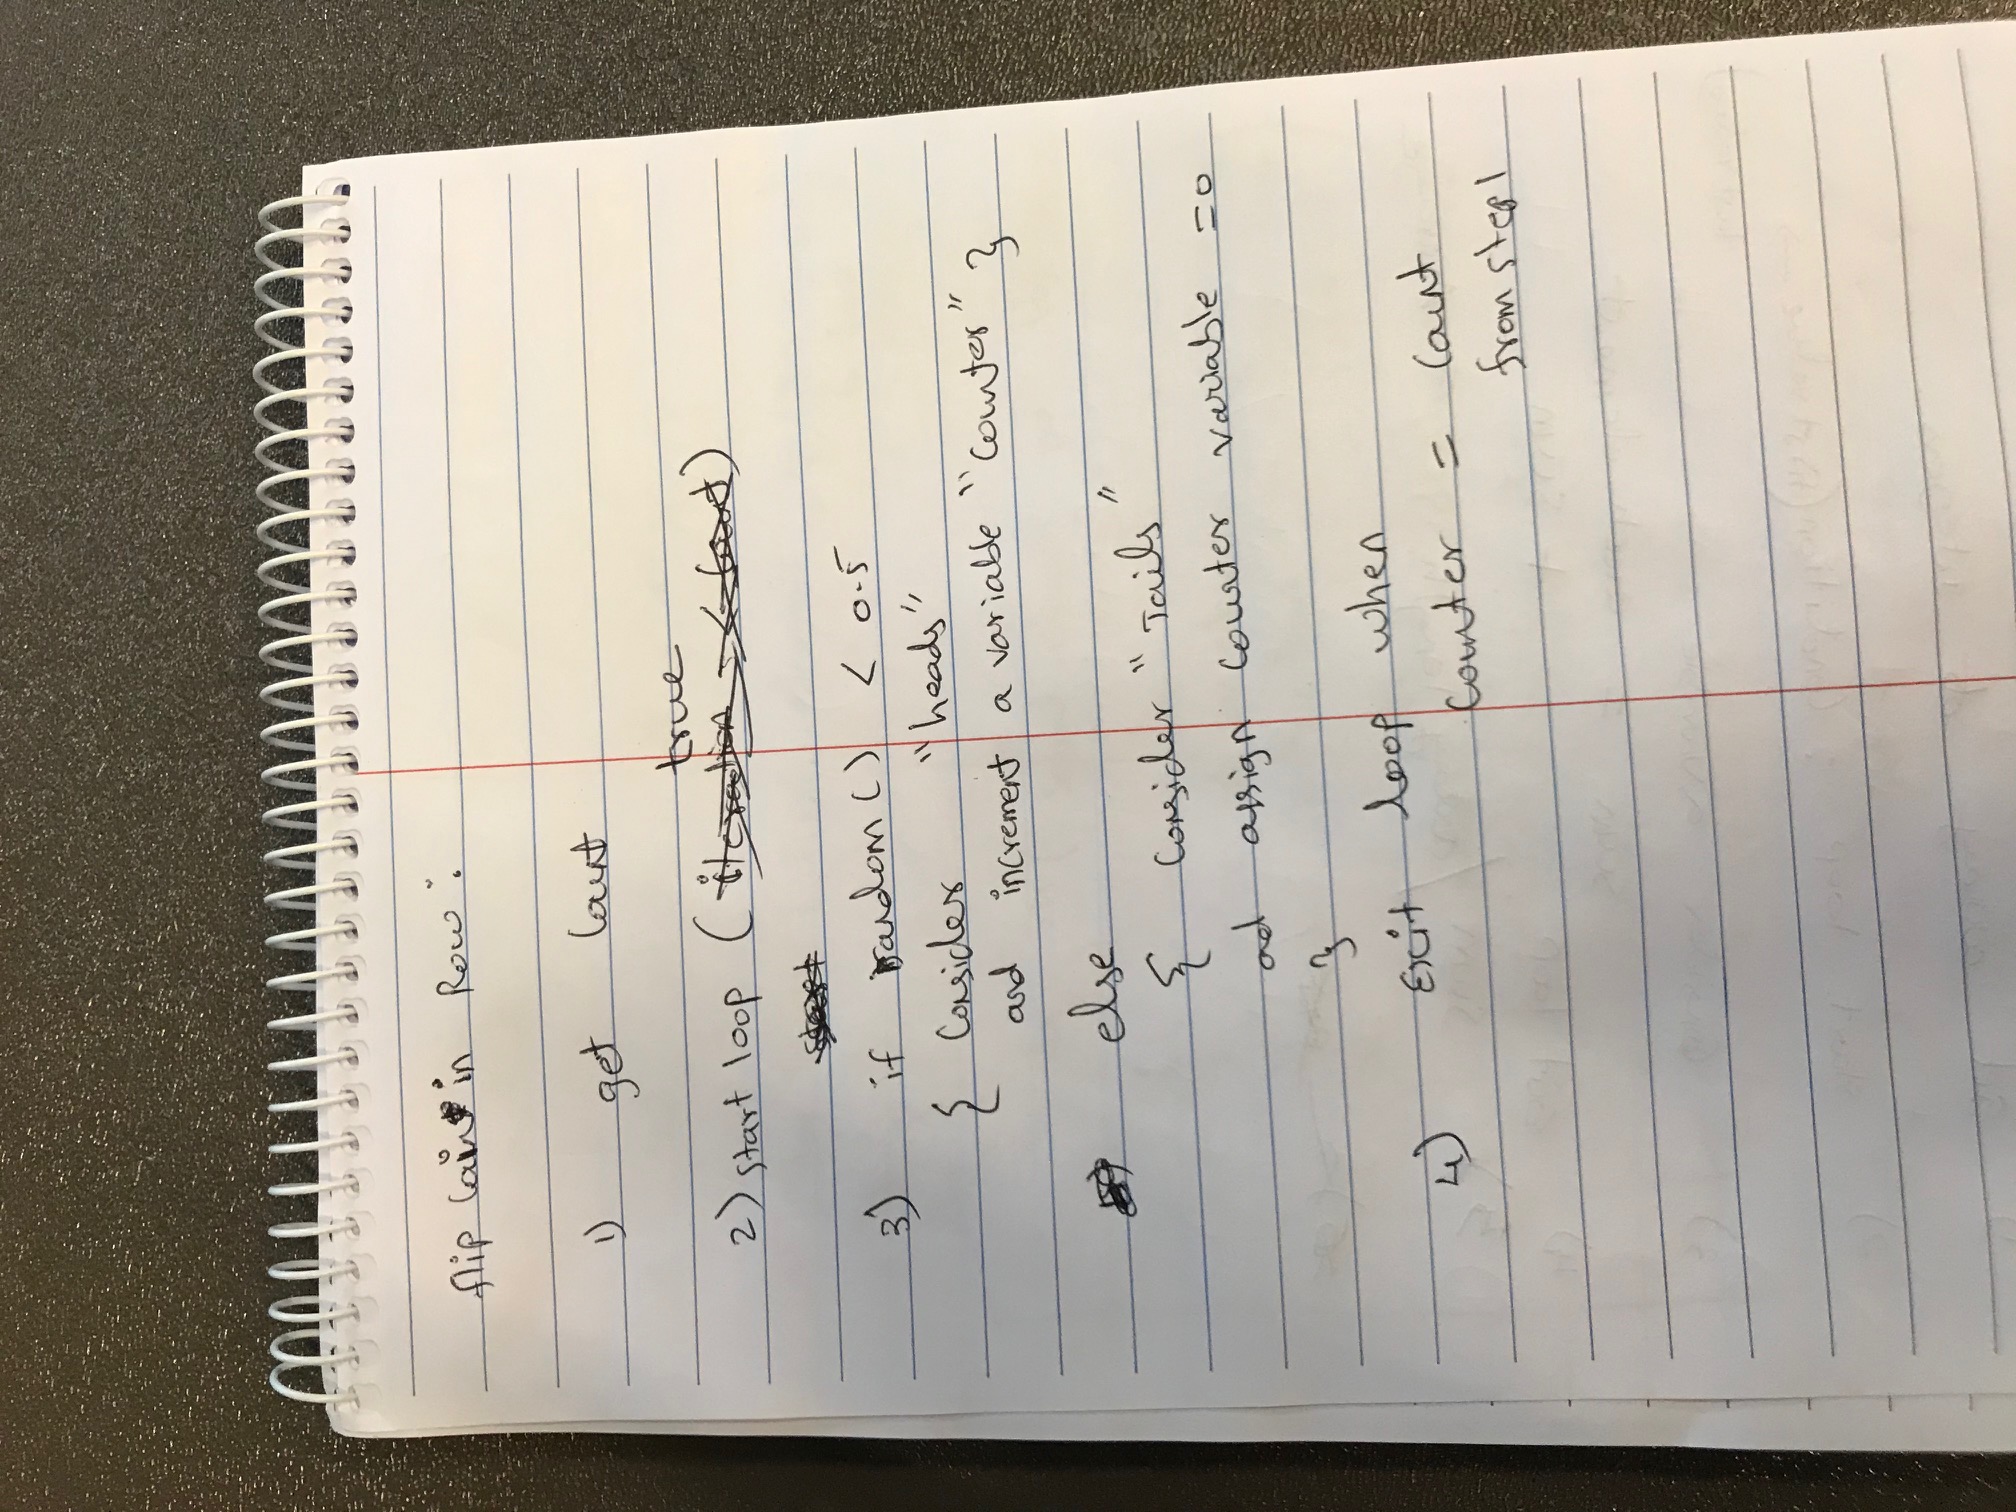 flip Coin in Row :
1) get Count
true
2) start loop (iteration < Count)
start
3) if random() < 0.5
{ Consider "heads"
and increment a variable "Counter" }
else
{ Consider "Tails"
ad assign Counter variable =0
}
4) Exit loop when
Counter = Count
from step1